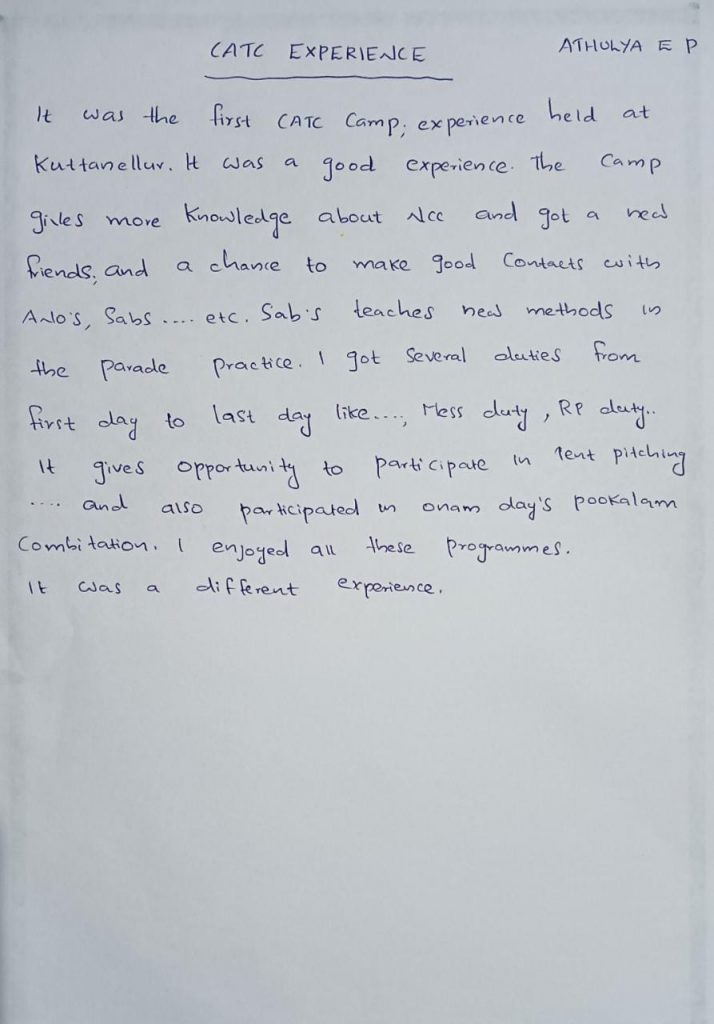 CATC EXPERIENCE ATHULYA E P
It was the first CATC Camp, experience held at
Kuttanellur. It was a good experience. The Camp
gives more Knowledge about Ncc and got a new
friends, and a chance to make good Contacts with
ANO's, Sabs .... etc. Sab's teaches new methods in
the parade practice. I got Several duties from
first day to last day like...., Mess duty, RP duty..
It gives opportunity to participate in Tent pitching
.... and also participated in onam day's pookalam
Combitation. I enjoyed all these programmes.
It was a different experience.